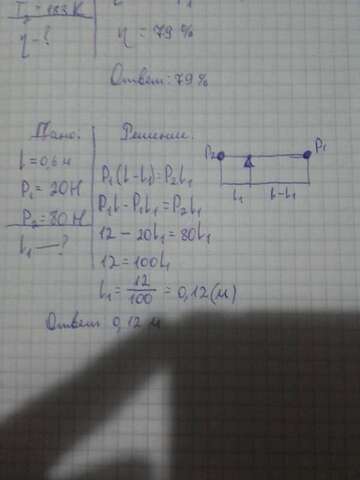 T₂ = 183 K
η – ?
η = 79 %
Ответ: 79 %
Дано:
l = 0,6 м
P₁ = 20 Н
P₂ = 80 Н
l₁ — ?
Решение:
P₁(l - l₁) = P₂l₁
P₁l - P₁l₁ = P₂l₁
12 - 20l₁ = 80l₁
12 = 100l₁
l₁ = 12/100 = 0,12 (м)
P₂ P₁
l₁ l - l₁
Ответ 0,12 м